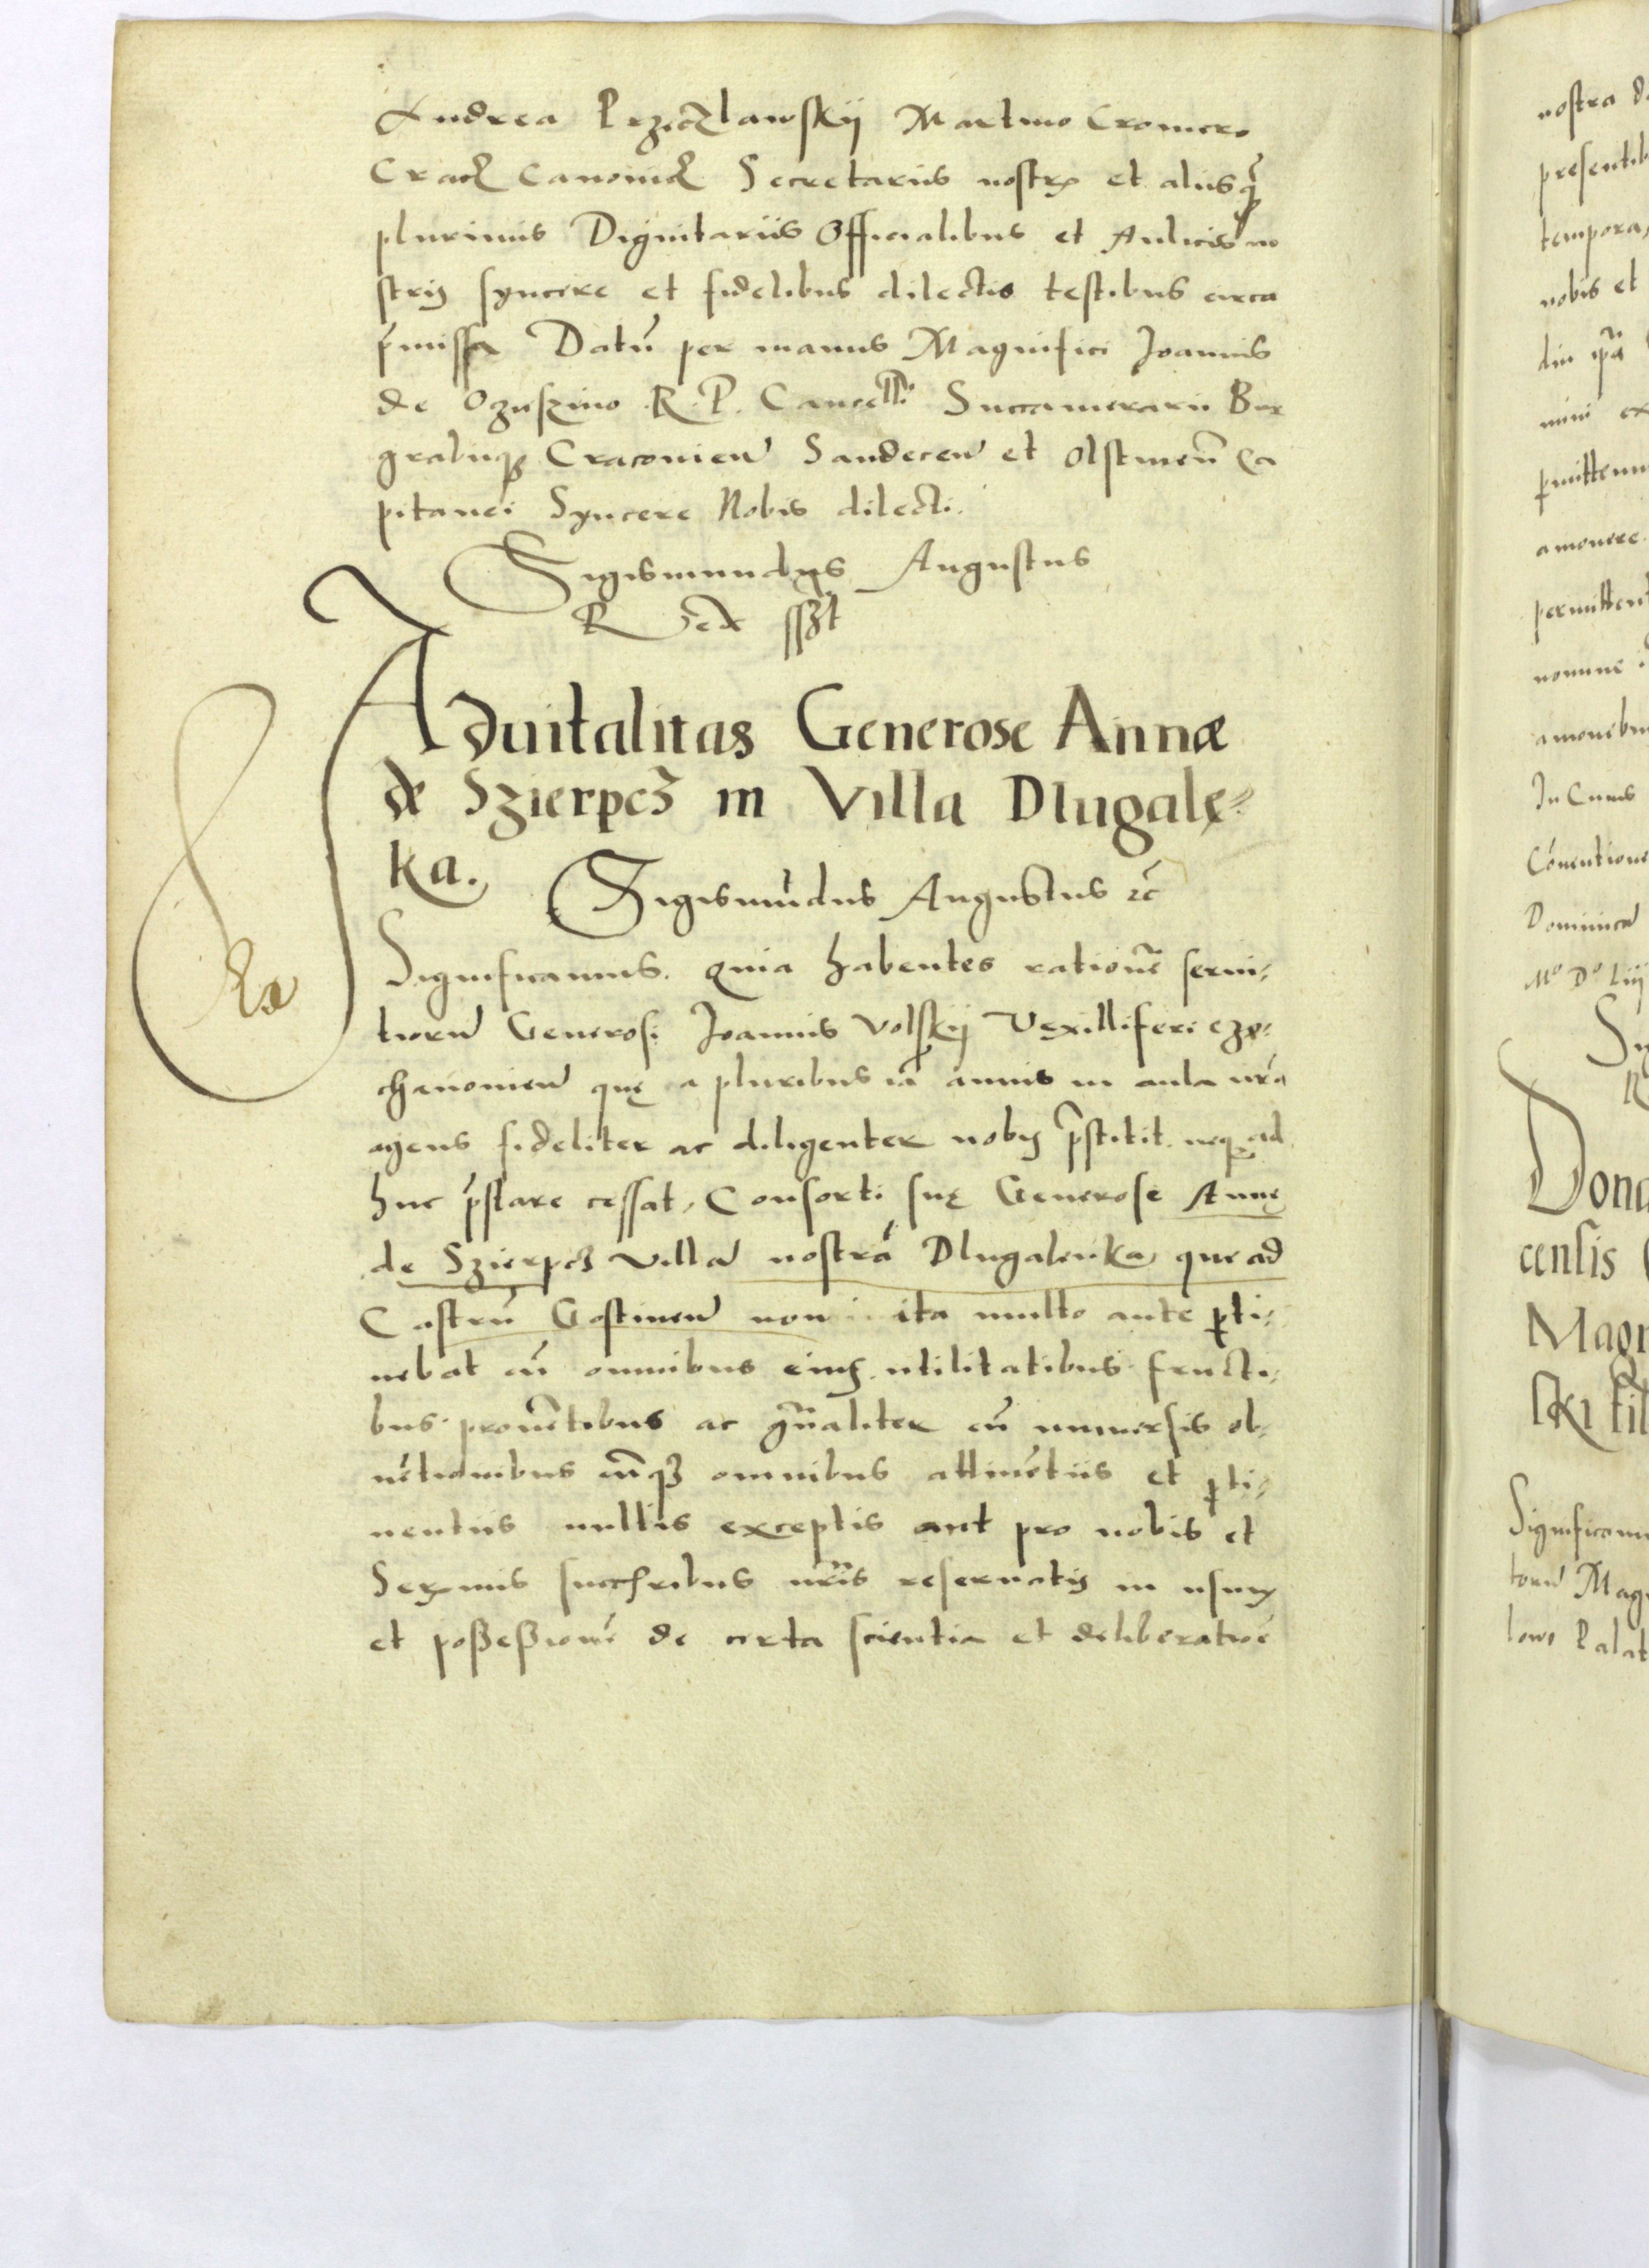 Andrea Przeczlawskÿ Martino Cromero
Crac̃ Canonic̃ Secretariis nostr̃ et aliisq̃
plurimis Dignitariis Officialibus et Aulicis no
stris syncere et fidelibus dilectis testibus circa
p̃missa Datũ per manus Magnifici Joannis
de Oczieszino R. P. Cancell. Succamerarii Bur
grabiiq3 Cracovien̄ Sandecen̄ et Olstinen̄ Ca
pitanei Syncere Nobis dilecti.
Sigismundus Augustus
Rex sszt
Advitalitas Generose Annæ
de Szierpcz in Villa Dlugalę-
ka. Sigismũdus Augustus ꝛc̃
Significamus. Quia habentes rationẽ servi-
tiorũ Generosi Joannis Volskÿ Vexilliferi cze-
chenovien̄ quę a pluribus iã annis in aula nr̃a
agens fideliter ac diligenter nobis p̃stitit. neq3 ad
huc p̃stare cessat, Consorti suę Generose Annę
de Szierpcz villã nostrã Dlugalenka que ad
Castrũ Gostinen̄ non ita multo ante ꝑti-
nebat cũ omnibus eius utilitatibus fructi-
bus provẽtibus ac gñaliter cũ universis ob-
vẽtionibus cũq3 omnibus attinẽtiis et ꝑti-
nentiis nullis exceptis aut pro nobis et
Serẽmis succribus nr̃is reservatis in usum
et possessionẽ de certa scientia et deliberatioẽ
nostra d
presentib
tempora
nobis et
mini ex
ꝑmittemu
amovere.
permittent
nomine
amovebu
In Cuius
Cõventione
Dominica
Mº Dº Liij
Dona
censis
Magn
ski fil
Significamu
torũ Mag
lowo Palat